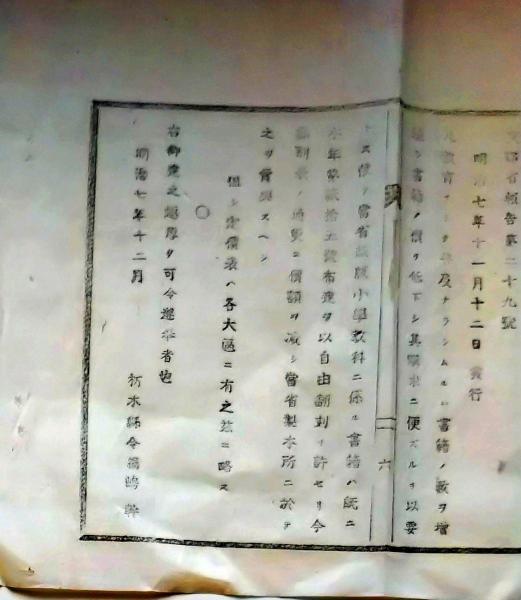 文部省報告第二十九號
明治七年十一月十二日 發行
教育 普及 ナラシムルハ書籍ノ數ヲ増
シ書籍ノ價ヲ低下シ其購求ニ便スルヲ以要
トス依テ當省蔵版小學教科ニ係ル書籍ハ既ニ
本年第貮拾五號布達ヲ以自由翻刻ヲ許セリ今
別表ノ通更ニ價額ヲ减シ當省製本所ニ於テ
之ヲ賣與スヘシ
但シ定價表ハ各大區ニ有之茲ニ略ス
○
右御達之趣厚ク可令遵奉者也
明治七年十二月
栃木縣令鍋嶋幹
二六